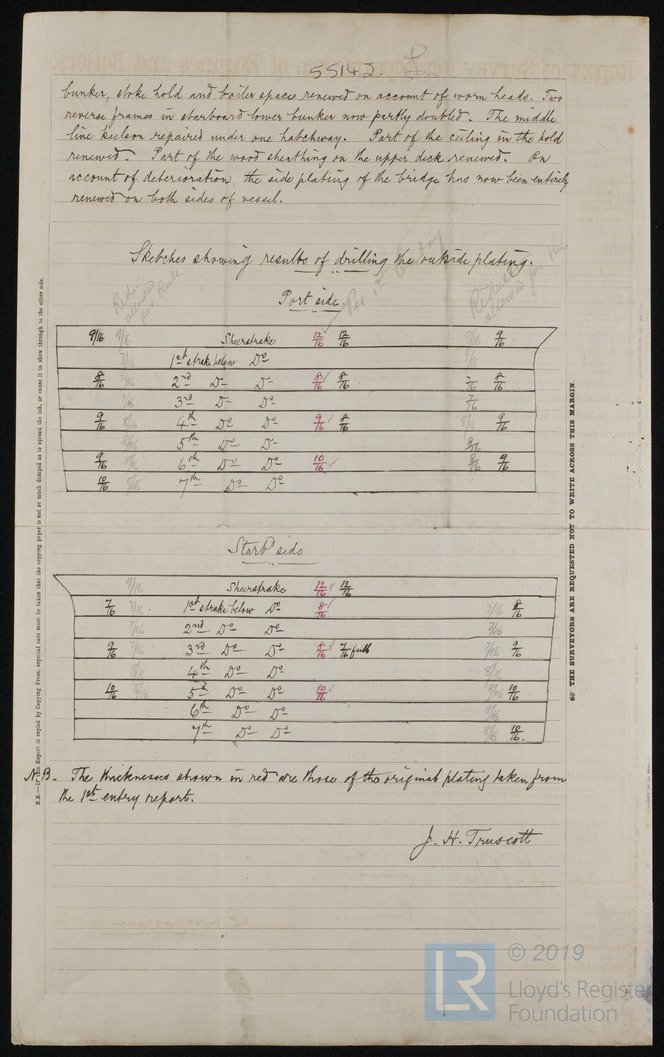 55142. L.
bunker, stoke hold and boiler space renewed on account of worn heads. Two
reverse frames in starboard lower bunker now partly doubled. The middle
line keelson repaired under one hatchway. Part of the ceiling in the hold
renewed. Part of the wood sheathing on the upper deck renewed. On
account of deterioration, the side plating of the bridge has now been entirely
renewed on both sides of vessel.
Sketches showing results of drilling the outside plating.
Per 1st Entry
Red. allowed per Rule
Port side.
allowed per
9/16 9/16 Sheerstrake 12/16 12/16 9/16 9/16
7/16 1st strake below Do
8/16 7/16 2nd Do Do 8/16 8/16 7/16 8/16
7/16 3rd Do Do 7/16
9/16 8/16 4th Do Do 9/16 8/16 8/16 9/16
8/16 5th Do Do 8/16
9/16 8/16 6th Do Do 10/16 8/16 9/16
10/16 8/16 7th Do Do
Starbd side
9/16 Sheerstrake 12/16 12/16
7/16 7/16 1st strake below Do 8/16 7/16 8/16
7/16 2nd Do Do 7/16
9/16 7/16 3rd Do Do 8/16 7/16 full 7/16 9/16
8/16 4th Do Do 8/16
10/16 8/16 5th Do Do 10/16 8/16 10/16
6th Do Do 8/16
7th Do Do 8/16 10/16.
N.B. The thicknesses shown in red are those of the original plating taken from
the 1st entry report.
J. H. Truscott
N.B.—If this Report is copied by Copying Press, especial care must be taken that the copying paper is not so much damped as to spread the ink, or cause it to show through to the other side.
THE SURVEYORS ARE REQUESTED NOT TO WRITE ACROSS THIS MARGIN.
LR
© 2019
Lloyd's Register
Foundation